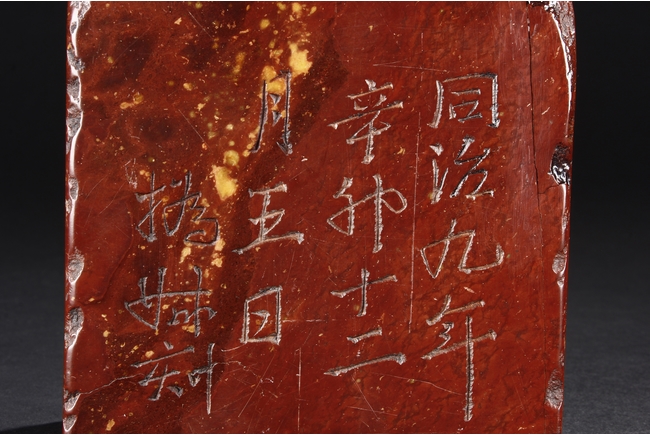 同治九年
辛卯十二
月王日
撝叔刻